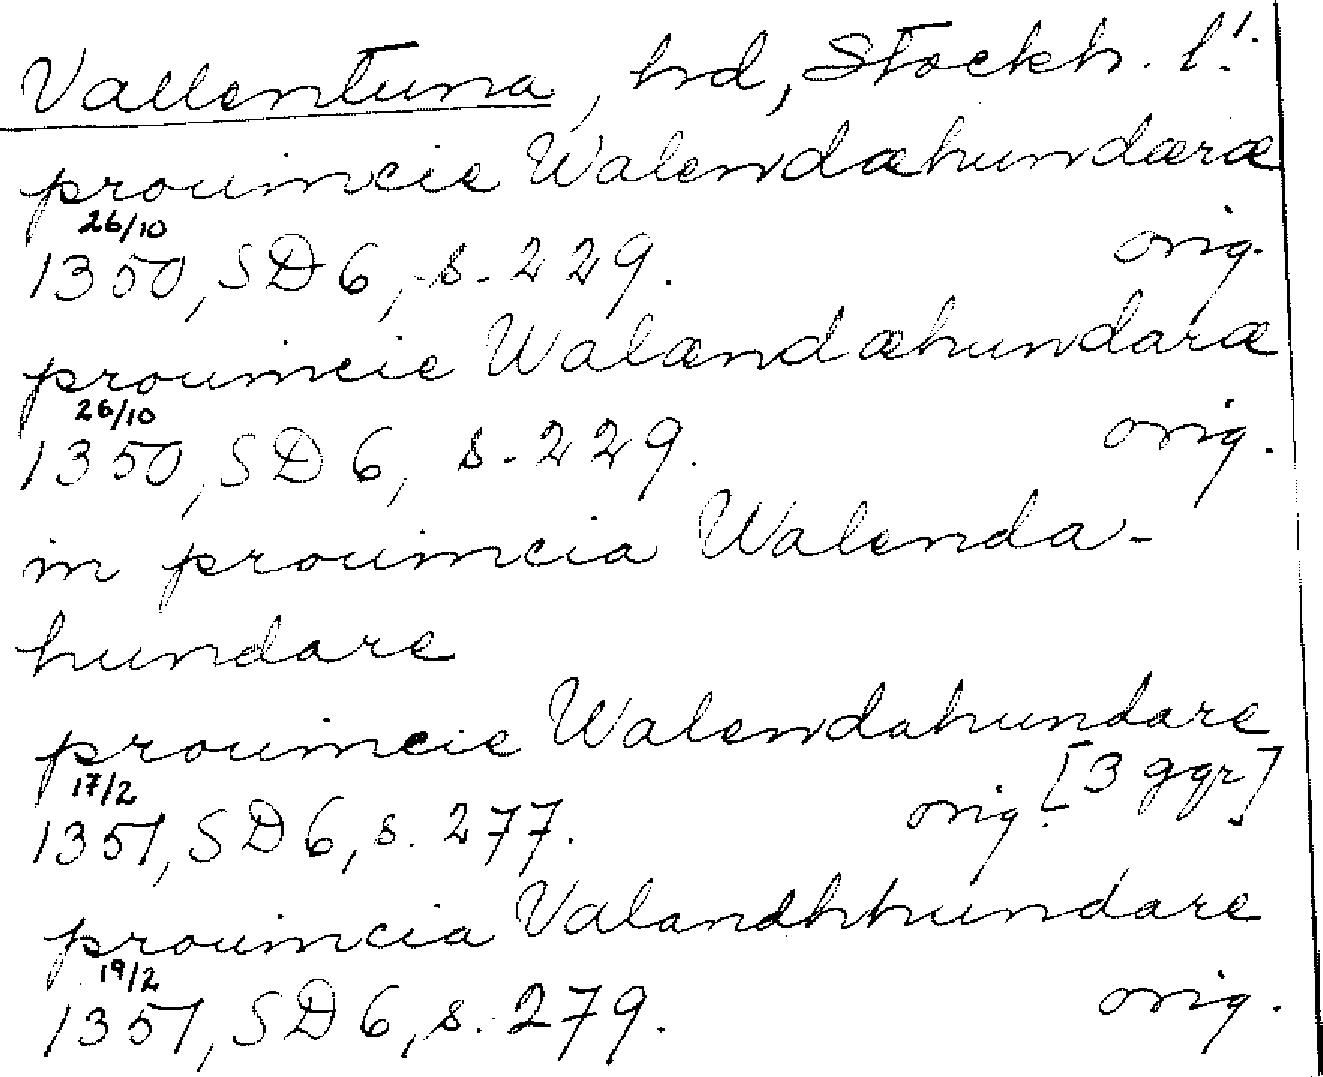 Vallentuna, hd, Stockh. l:
prouincie Walendæhundæræ
26/10
1350, SD 6, s. 229. orig.
prouincie Walændæhundaræ
26/10
1350, SD 6, s. 229. orig.
in prouincia Walenda-
hundare
prouincie Walendahundare
17/2
1351, SD 6, s. 277. orig. [3 ggr]
prouincia Valandhhundare
19/2
1351, SD 6, s. 279. orig.